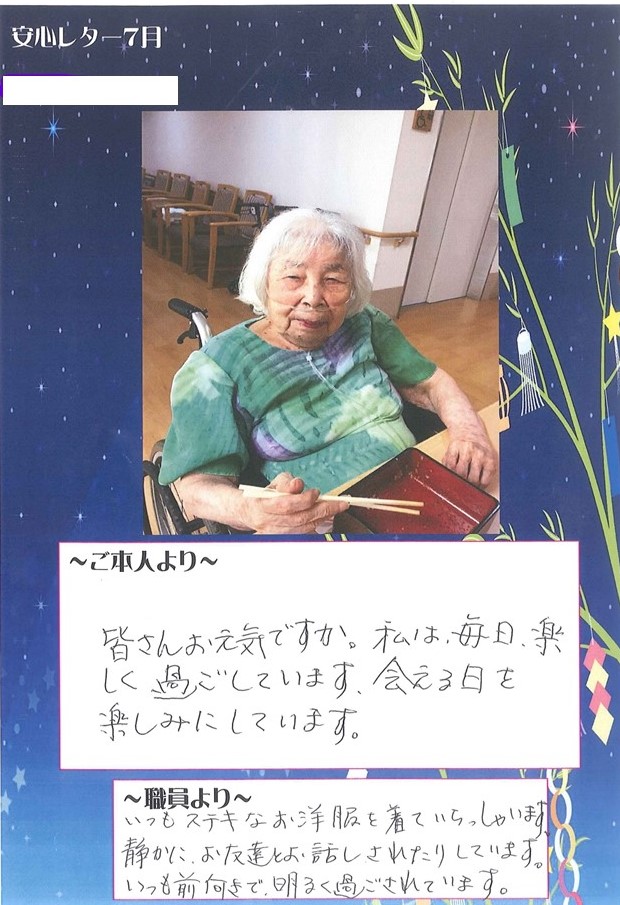 安心レター7月
〜ご本人より〜
皆さんお元気ですか。私は、毎日、楽
しく過ごしています、会える日を
楽しみにしています。
〜職員より〜
いつもステキなお洋服を着ていらっしゃいます。
静かに、お友達とお話しされたりしています。
いつも前向きで、明るく過ごされています。